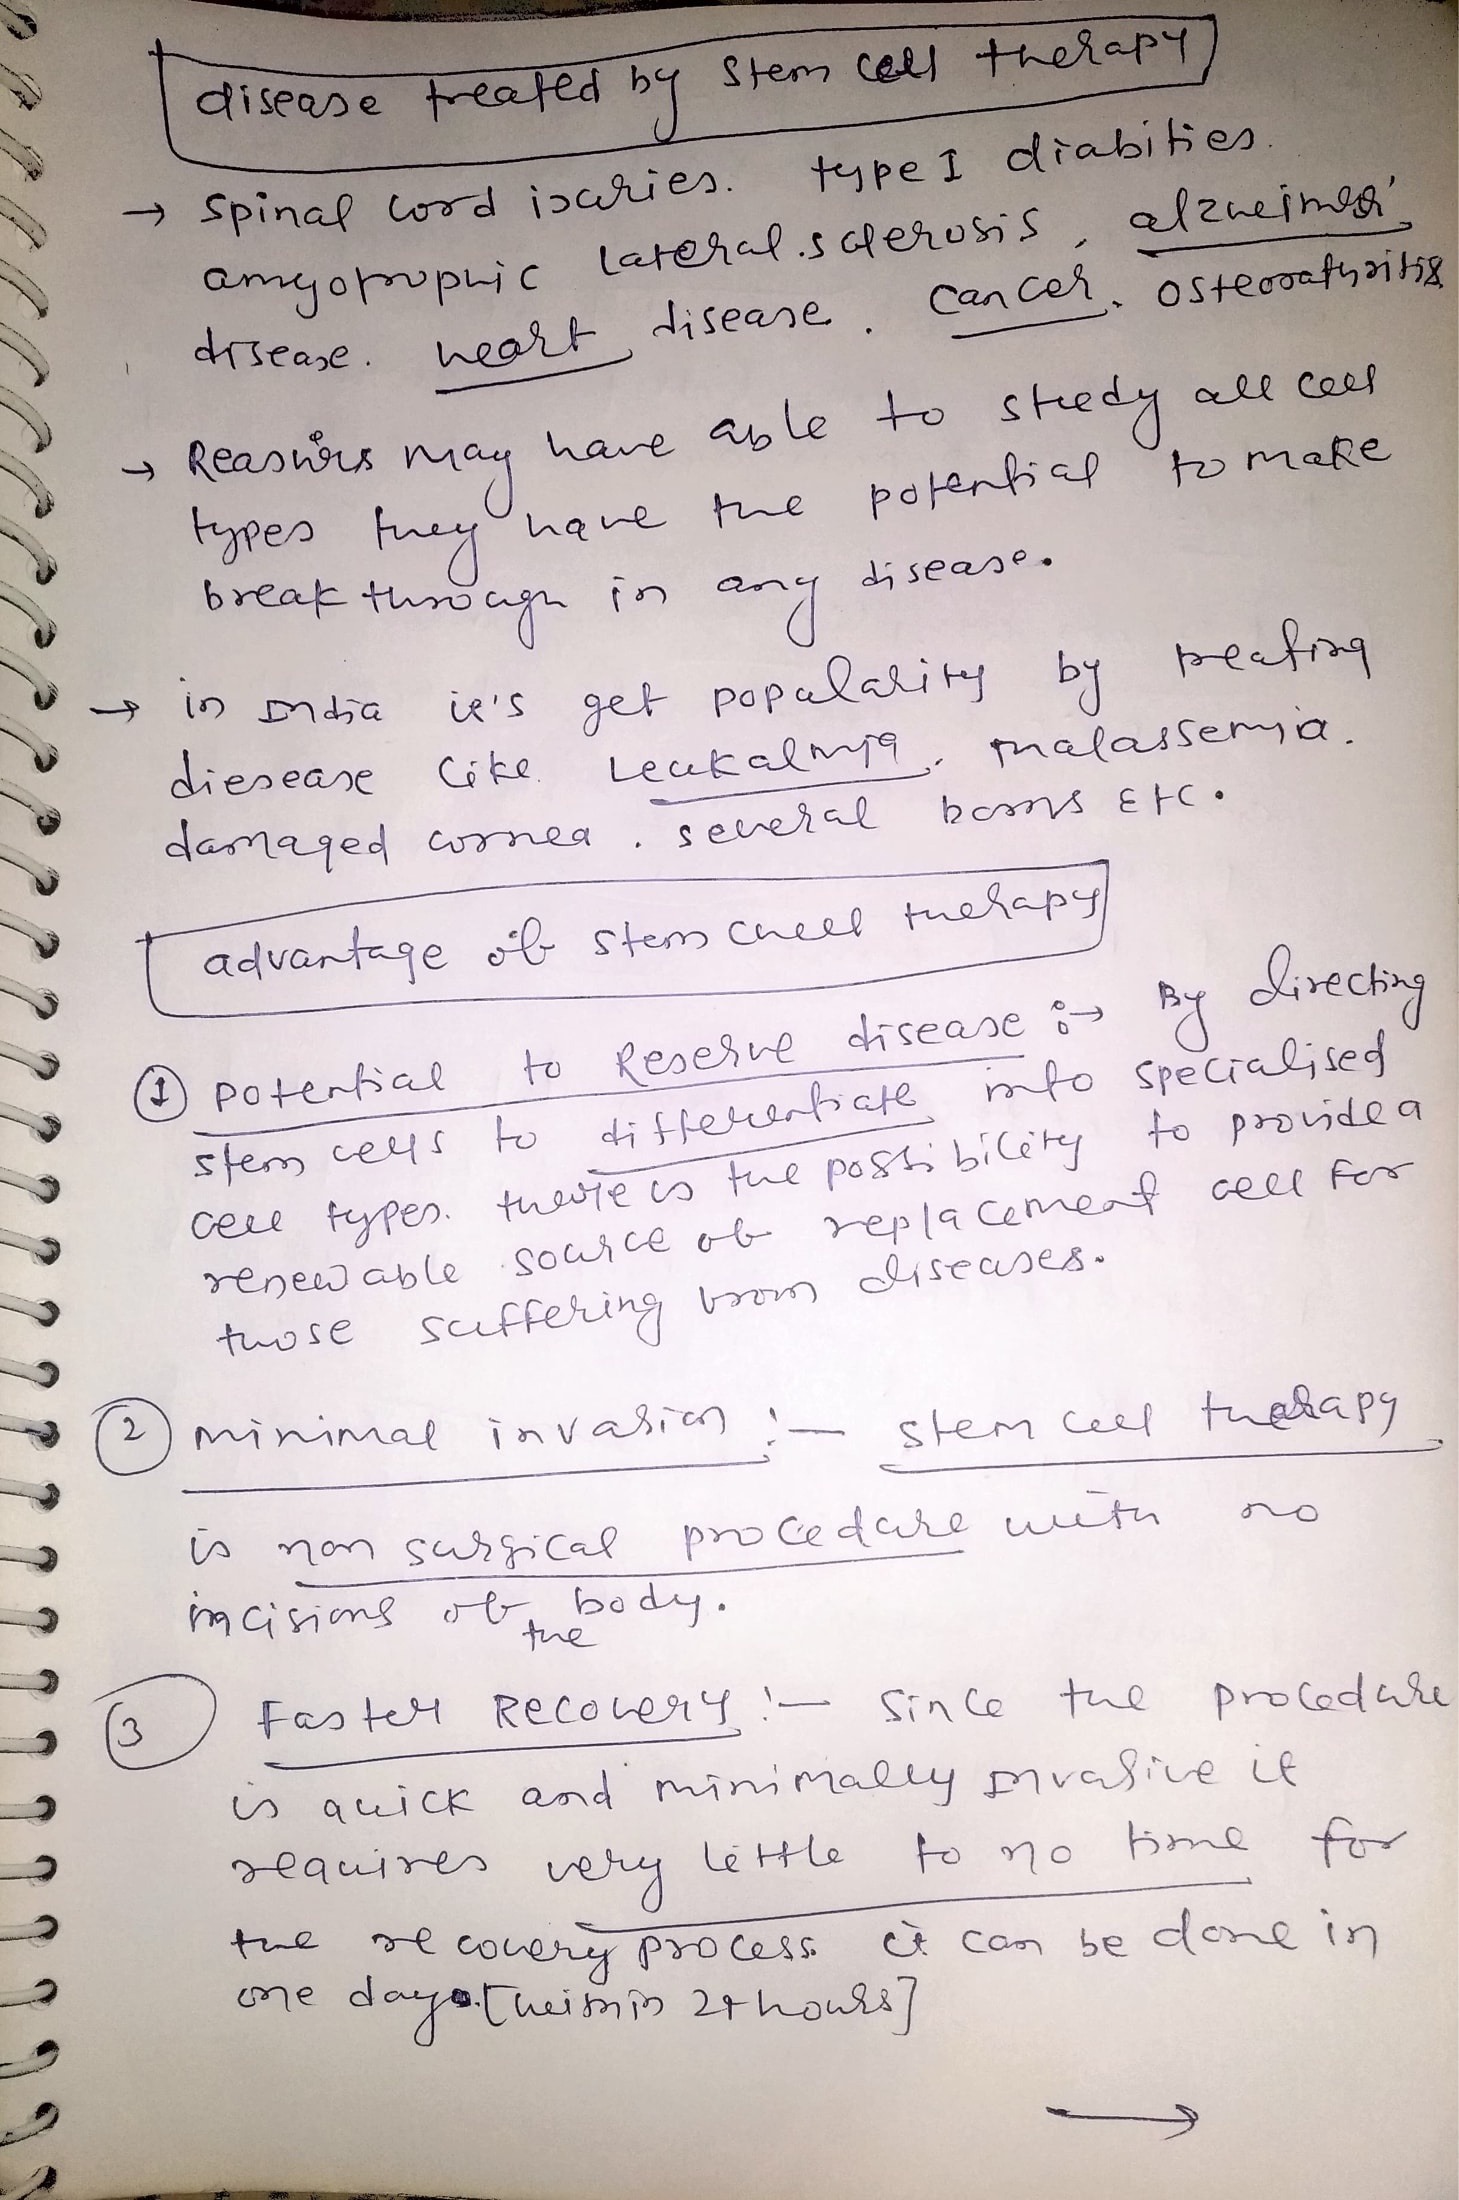 disease treated by Stem cell therapy
→ Spinal cord iscuries. type I diabities.
amyotrophic lateral.sclerosis, alzheimer'
disease. heart disease. cancer. osteooathritis
→ may have able to study all cell
types they have the potential to make
break through in any disease.
→ in India it's get popularity by treating
diesease like Leukalmia, thalassemia.
damaged cornea. several borns Etc.
advantage of stem cheel therapy
① potential to Reserve disease :→ By directing
stem cells to differentiate into specialised
cell types. there is the possibility to provide a
renewable source of replacement cell for
those suffering from diseases.
② minimal invasion :– stem cell therapy
is non surgical procedure with no
incisions of the body.
③ Faster Recovery :– Since the procedure
is quick and minimally invasive it
requires very little to no time for
the recovery process it can be done in
one day. [within 24 hours]
→